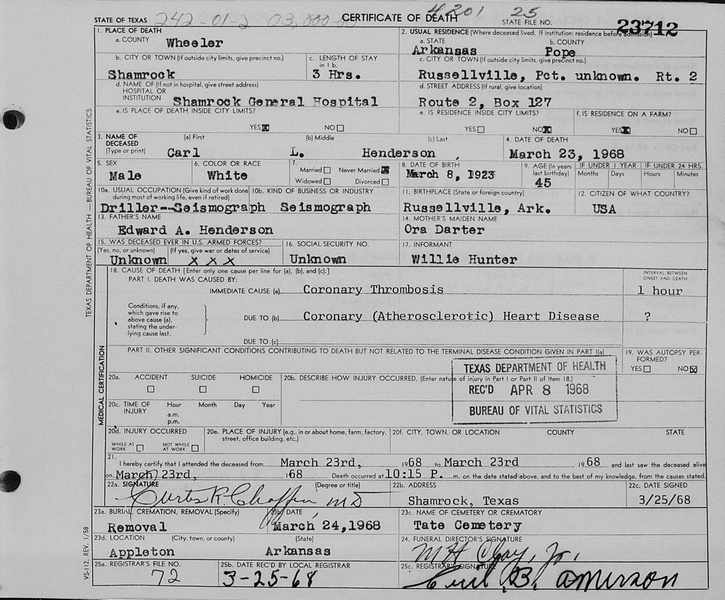 STATE OF TEXAS
242-01-2 03,000-00
CERTIFICATE OF DEATH
4201 25
STATE FILE NO. 23712
1. PLACE OF DEATH
a. COUNTY Wheeler
2. USUAL RESIDENCE (Where deceased lived. If institution: residence before admission)
a. STATE Arkansas
b. COUNTY Pope
b. CITY OR TOWN (If outside city limits, give precinct no.) Shamrock
c. LENGTH OF STAY in 1 b. 3 Hrs.
c. CITY OR TOWN (If outside city limits, give precinct no.)
Russellville, Pct. unknown. Rt. 2
d. NAME OF (If not in hospital, give street address) HOSPITAL OR INSTITUTION Shamrock General Hospital
d. STREET ADDRESS (If rural, give location)
Route 2, Box 127
e. IS PLACE OF DEATH INSIDE CITY LIMITS?
YES NO
e. IS RESIDENCE INSIDE CITY LIMITS?
YES NO
f. IS RESIDENCE ON A FARM?
YES NO
3. NAME OF DECEASED (Type or print)
(a) First Carl
(b) Middle L.
(c) Last Henderson
4. DATE OF DEATH
March 23, 1968
5. SEX Male
6. COLOR OR RACE White
7. Married Never Married Widowed Divorced
8. DATE OF BIRTH March 8, 1923
9. AGE (In years last birthday) 45
IF UNDER 1 YEAR Months Days
IF UNDER 24 HRS. Hours Minutes
10a. USUAL OCCUPATION (Give kind of work done during most of working life, even if retired)
Driller--Seismograph
10b. KIND OF BUSINESS OR INDUSTRY
Seismograph
11. BIRTHPLACE (State or foreign country)
Russellville, Ark.
12. CITIZEN OF WHAT COUNTRY?
USA
13. FATHER'S NAME
Edward A. Henderson
14. MOTHER'S MAIDEN NAME
Ora Darter
15. WAS DECEASED EVER IN U.S. ARMED FORCES?
(Yes, no, or unknown) (If yes, give war or dates of service)
Unknown x x x
16. SOCIAL SECURITY NO.
Unknown
17. INFORMANT
Willie Hunter
18. CAUSE OF DEATH [Enter only one cause per line for (a), (b), and (c).]
PART I. DEATH WAS CAUSED BY:
INTERVAL BETWEEN ONSET AND DEATH
IMMEDIATE CAUSE (a) Coronary Thrombosis 1 hour
Conditions, if any, which gave rise to above cause (a), stating the underlying cause last.
DUE TO (b) Coronary (Atherosclerotic) Heart Disease ?
DUE TO (c)
PART II. OTHER SIGNIFICANT CONDITIONS CONTRIBUTING TO DEATH BUT NOT RELATED TO THE TERMINAL DISEASE CONDITION GIVEN IN PART I(a)
19. WAS AUTOPSY PERFORMED?
YES NO
TEXAS DEPARTMENT OF HEALTH
REC'D APR 8 1968
BUREAU OF VITAL STATISTICS
20a. ACCIDENT SUICIDE HOMICIDE
20b. DESCRIBE HOW INJURY OCCURRED. (Enter nature of injury in Part I or Part II of item 18.)
20c. TIME OF INJURY Hour a.m. p.m. Month Day Year
20d. INJURY OCCURRED
WHILE AT WORK NOT WHILE AT WORK
20e. PLACE OF INJURY (e.g., in or about home, farm, factory, street, office building, etc.)
20f. CITY, TOWN, OR LOCATION COUNTY STATE
21. I hereby certify that I attended the deceased from March 23rd, 1968 to March 23rd 1968 and last saw the deceased alive
on March 23rd, 1968 Death occurred at 10:15 P. m. on the date stated above, and to the best of my knowledge, from the causes stated.
22a. SIGNATURE (Degree or title)
Curtis R Chaffin MD
22b. ADDRESS
Shamrock, Texas
22c. DATE SIGNED
3/25/68
23a. BURIAL, CREMATION, REMOVAL (Specify)
Removal
23b. DATE
March 24, 1968
23c. NAME OF CEMETERY OR CREMATORY
Tate Cemetery
23d. LOCATION (City, town, or county) (State)
Appleton Arkansas
24. FUNERAL DIRECTOR'S SIGNATURE
M H Clay, Jr.
25a. REGISTRAR'S FILE NO.
72
25b. DATE REC'D BY LOCAL REGISTRAR
3-25-68
25c. REGISTRAR'S SIGNATURE
B. Amerson
TEXAS DEPARTMENT OF HEALTH—BUREAU OF VITAL STATISTICS
MEDICAL CERTIFICATION
VS-112, REV. 1/58